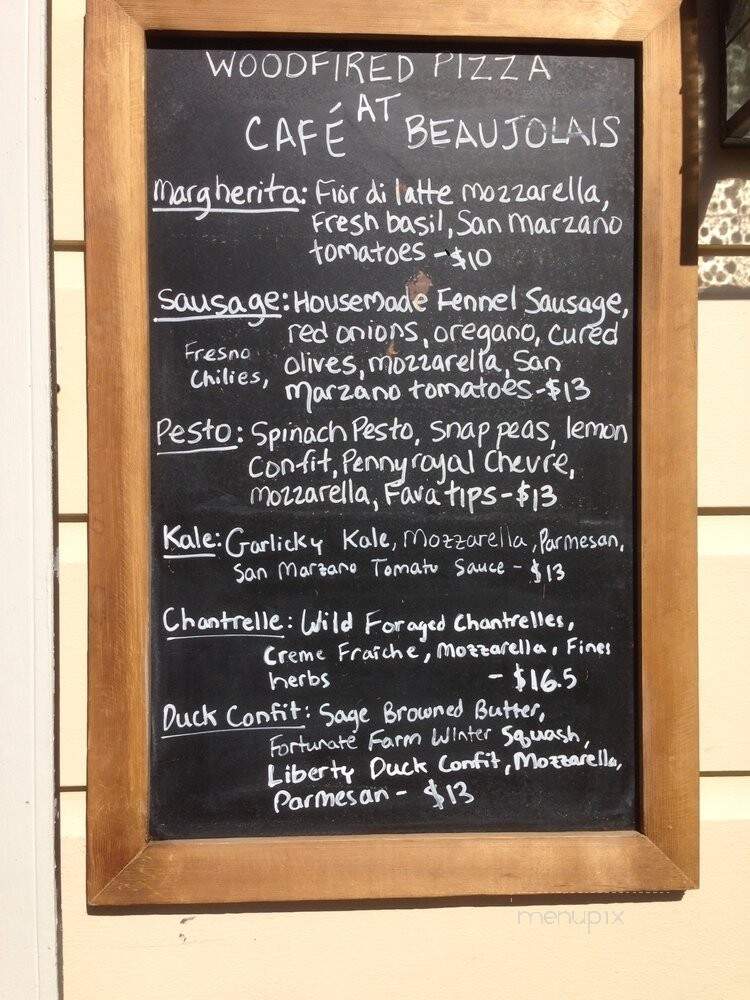 WOODFIRED PIZZA
AT
CAFÉ BEAUJOLAIS
Margherita: Fior di latte mozzarella,
Fresh basil, San Marzano
tomatoes - $10
Sausage: Housemade Fennel Sausage,
red onions, oregano, cured
Fresno olives, mozzarella, San
Chilies, Marzano tomatoes - $13
Pesto: Spinach Pesto, snap peas, lemon
Confit, Pennyroyal Chevre,
mozzarella, Fava tips - $13
Kale: Garlicky Kale, Mozzarella, Parmesan,
San Marzano Tomato Sauce - $13
Chantrelle: Wild Foraged Chantrelles,
Creme Fraiche, Mozzarella, Fines
herbs - $16.5
Duck Confit: Sage Browned Butter,
Fortunate Farm Winter Squash,
Liberty Duck Confit, Mozzarella,
Parmesan - $13
menupix